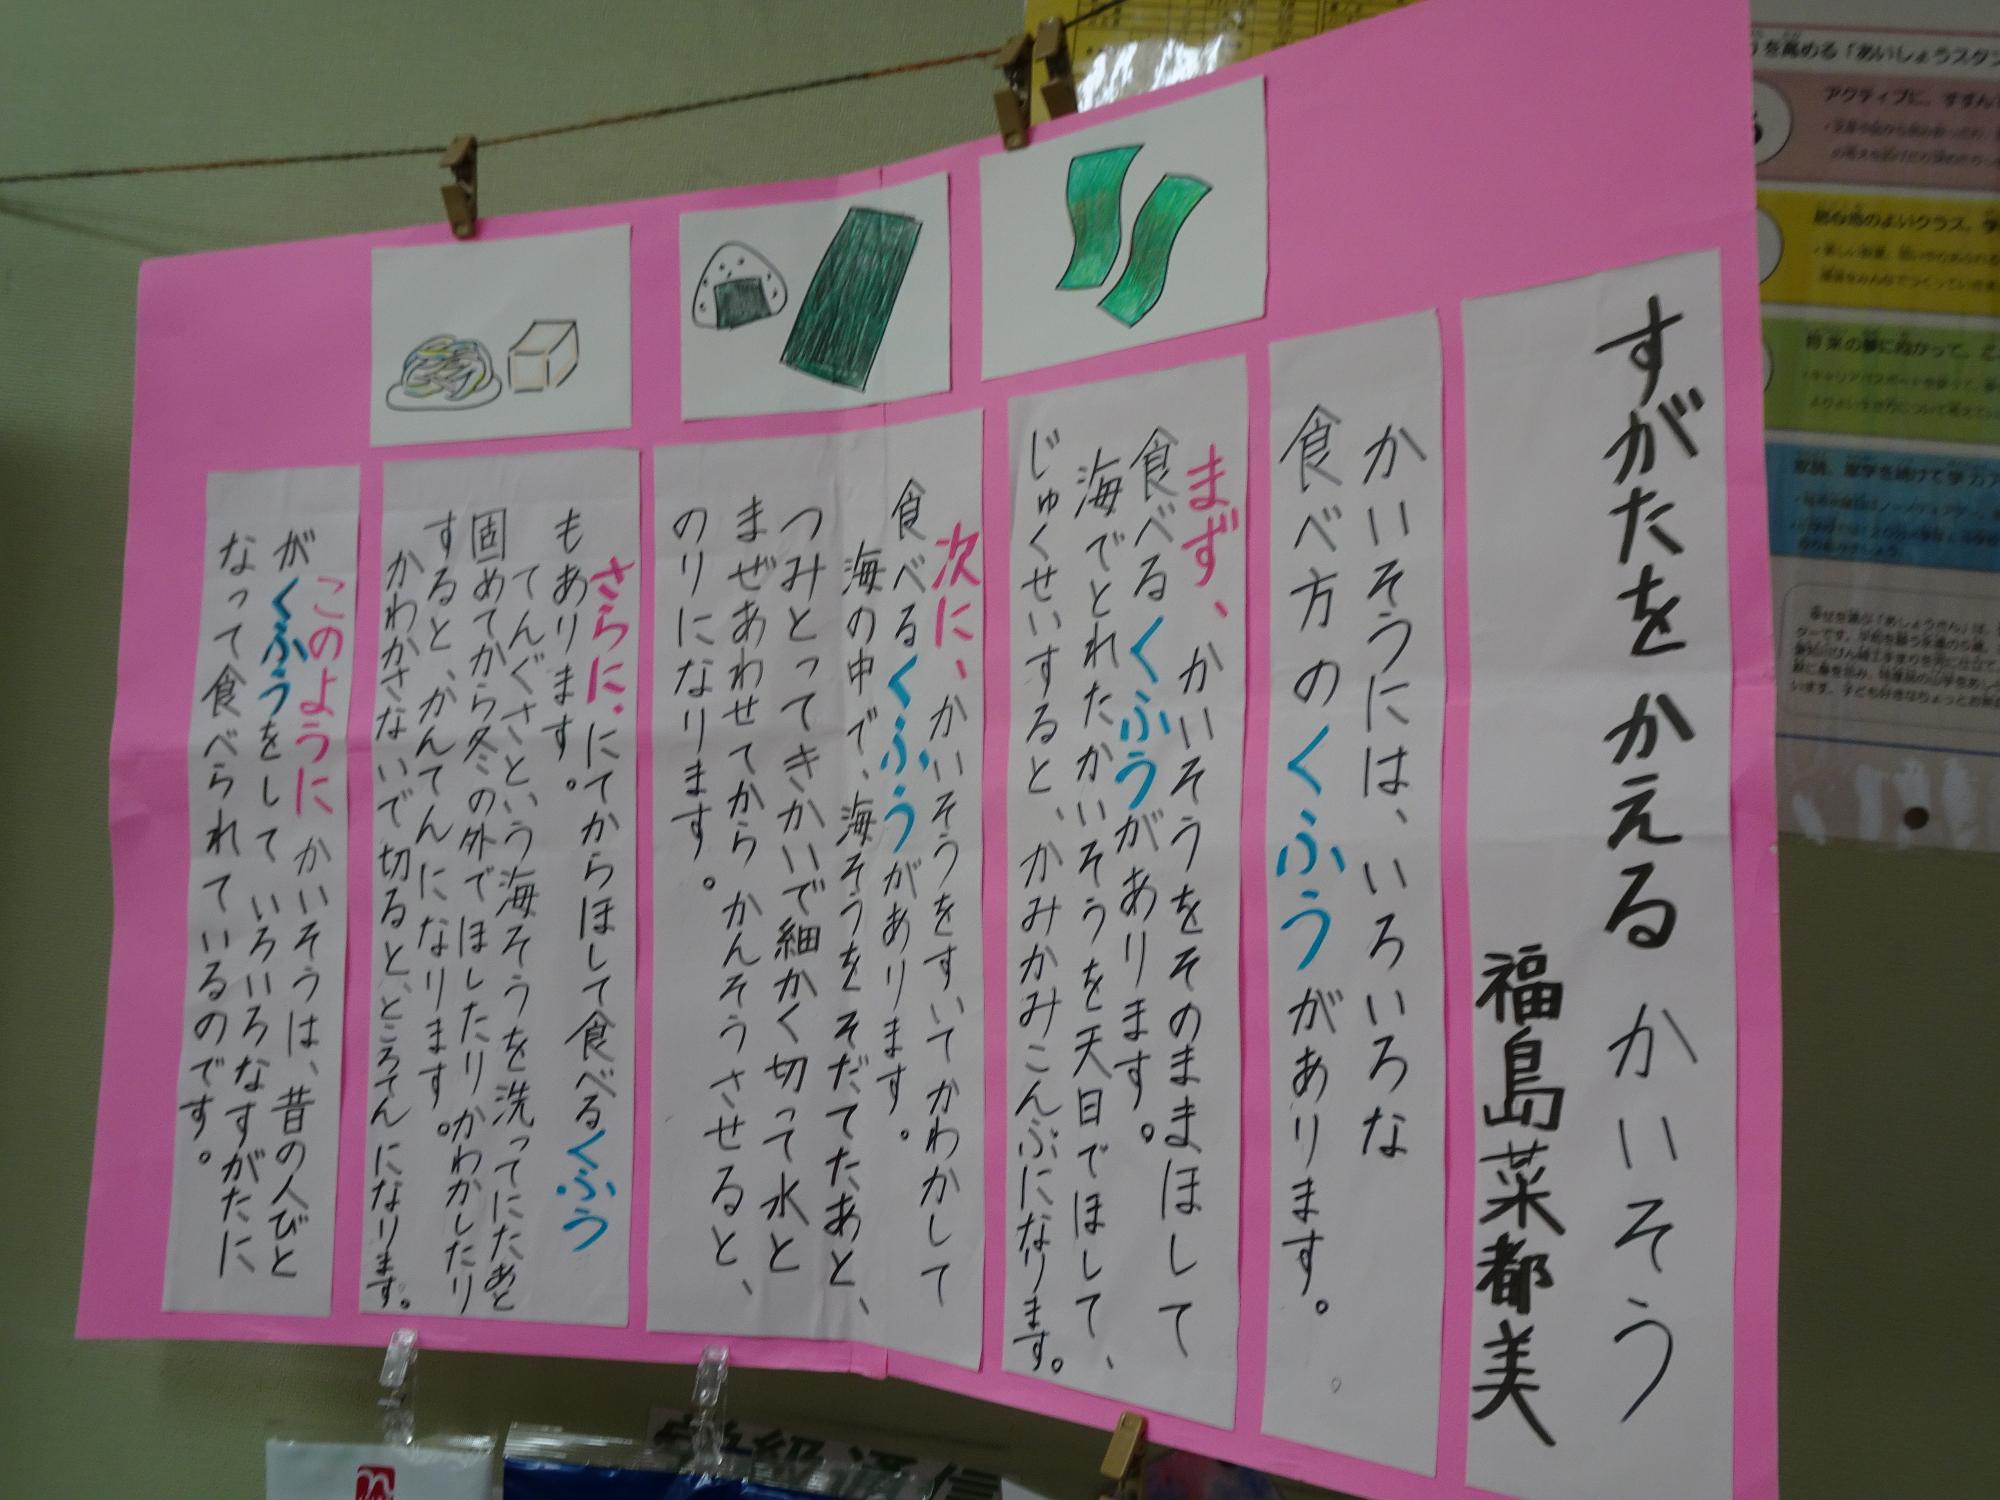 すがたをかえるかいそう
福島菜都美
かいそうには、いろいろな
食べ方のくふうがあります。
まず、かいそうをそのままほして
食べるくふうがあります。
海でとれたかいそうを天日でほして、
じゅくせいすると、かみかみこんぶになります。
次に、かいそうをすいてかわかして
食べるくふうがあります。
海の中で、海そうをそだてたあと、
つみとってきかいで細かく切って水と
まぜあわせてからかんそうさせると、
のりになります。
さらに、にてからほして食べるくふう
もあります。
てんぐさという海そうを洗ってにたあと
固めてから冬の外でほしたりかわかしたり
すると、かんてんになります。
かわかさないで切ると、ところてんになります。
このようにかいそうは、昔の人びと
がくふうをしていろいろなすがたに
なって食べられているのです。
を高める「あいしょうスタン
アクティブに、すすんで
のよいクラス、学
将来の夢に向かって、こ
学級通信